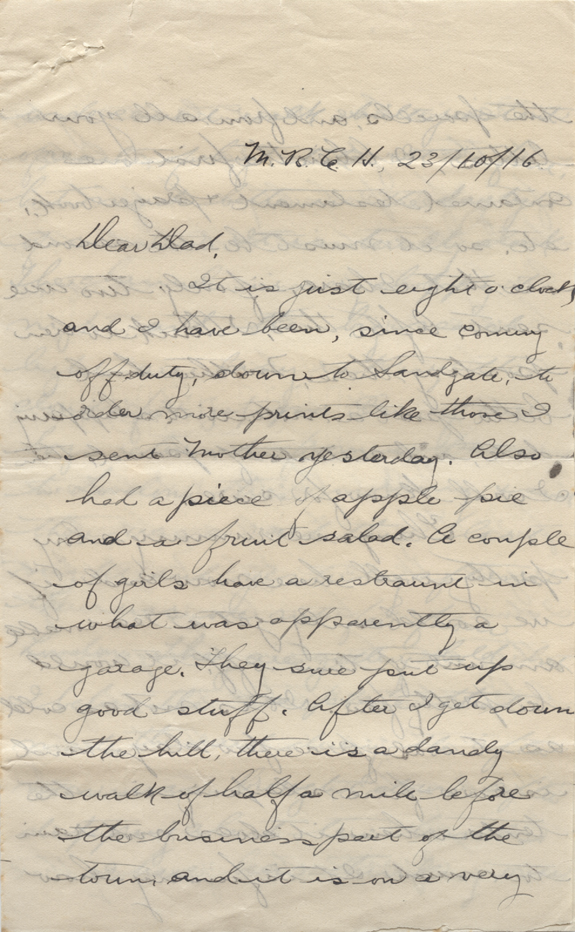 M. R. C. H., 23/10/16.
Dear Dad,
It is just eight o'clock,
and I have been, since coming
off duty, down to Sandgate, to
order more prints like those I
sent Mother yesterday. Also
had a piece of apple pie
and a fruit salad. A couple
of girls have a restraunt in
what was apparently a
garage. They sure put up
good stuff. After I get down
the hill, there is a dandy
walk of half a mile before
the business part of the
town, and it is on a very